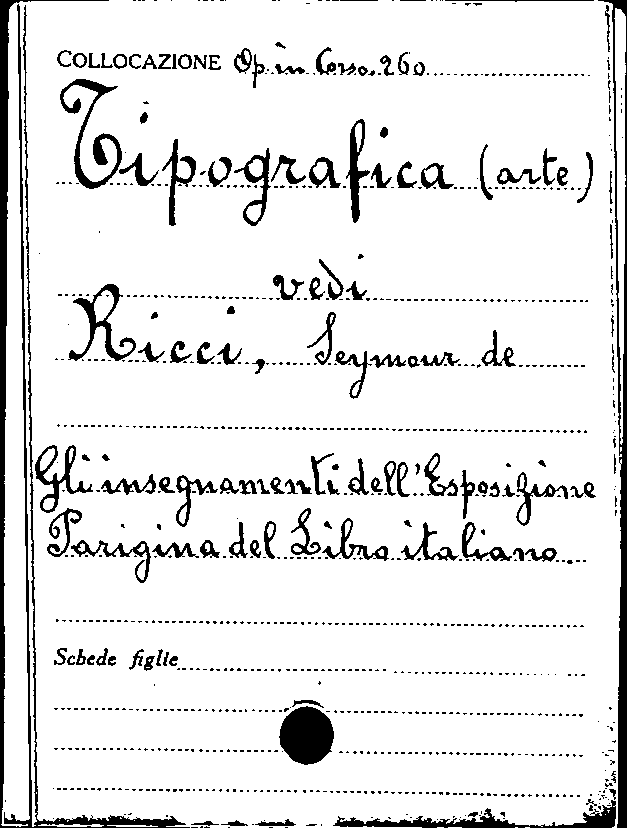 COLLOCAZIONE Op. in Corso. 260
Tipografica (arte)
vedi
Ricci, Seymour de
Gli insegnamenti dell'Esposizione
Parigina del Libro italiano.
Schede figlie